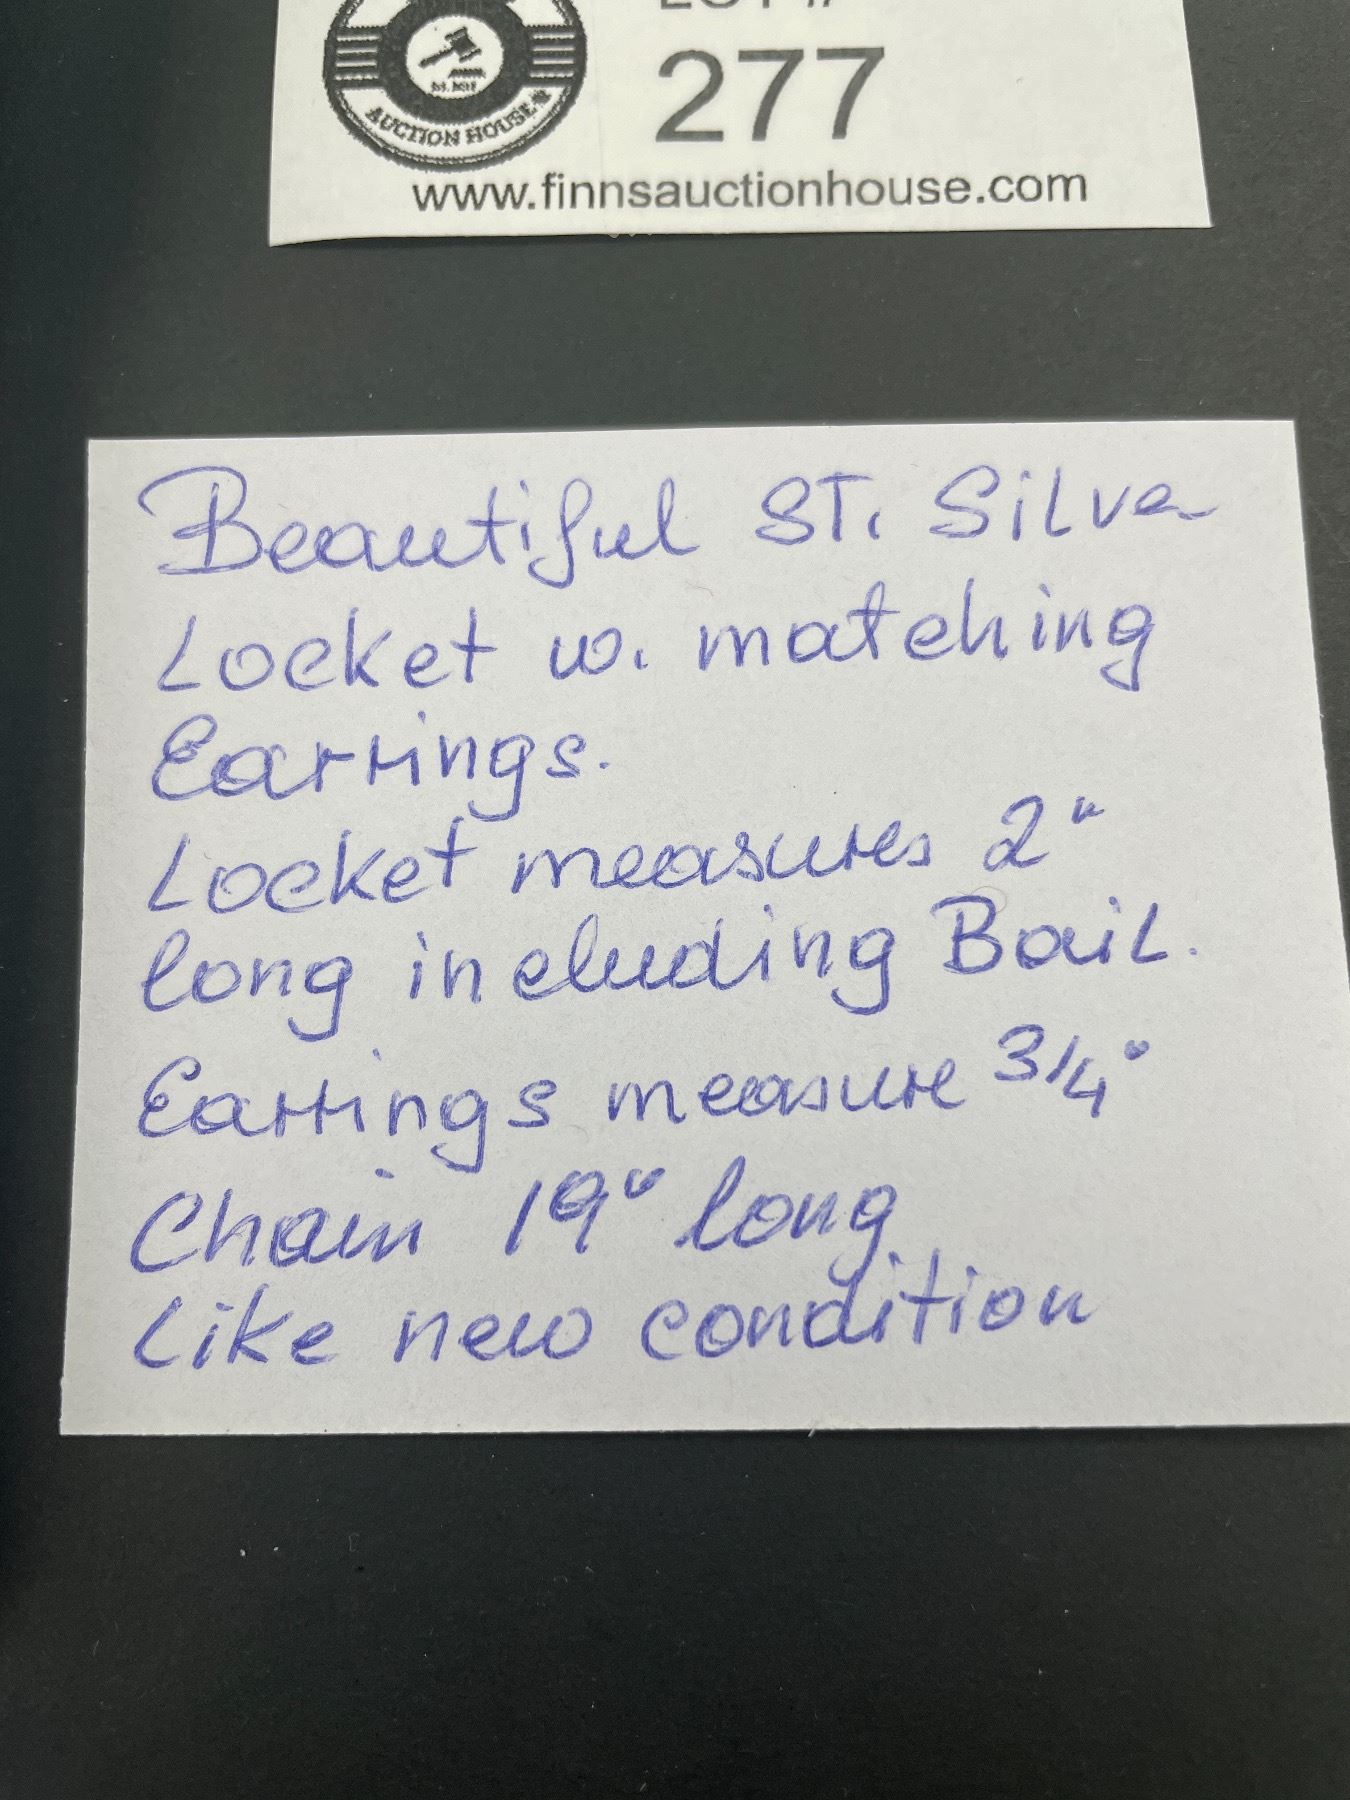 LOT #
277
EST. 2017
AUCTION HOUSE
www.finnsauctionhouse.com
Beautiful ST. Silver
Locket w. matching
Earrings.
Locket measures 2"
long including Bail.
Earrings measure 3/4"
Chain 19" long
Like new condition